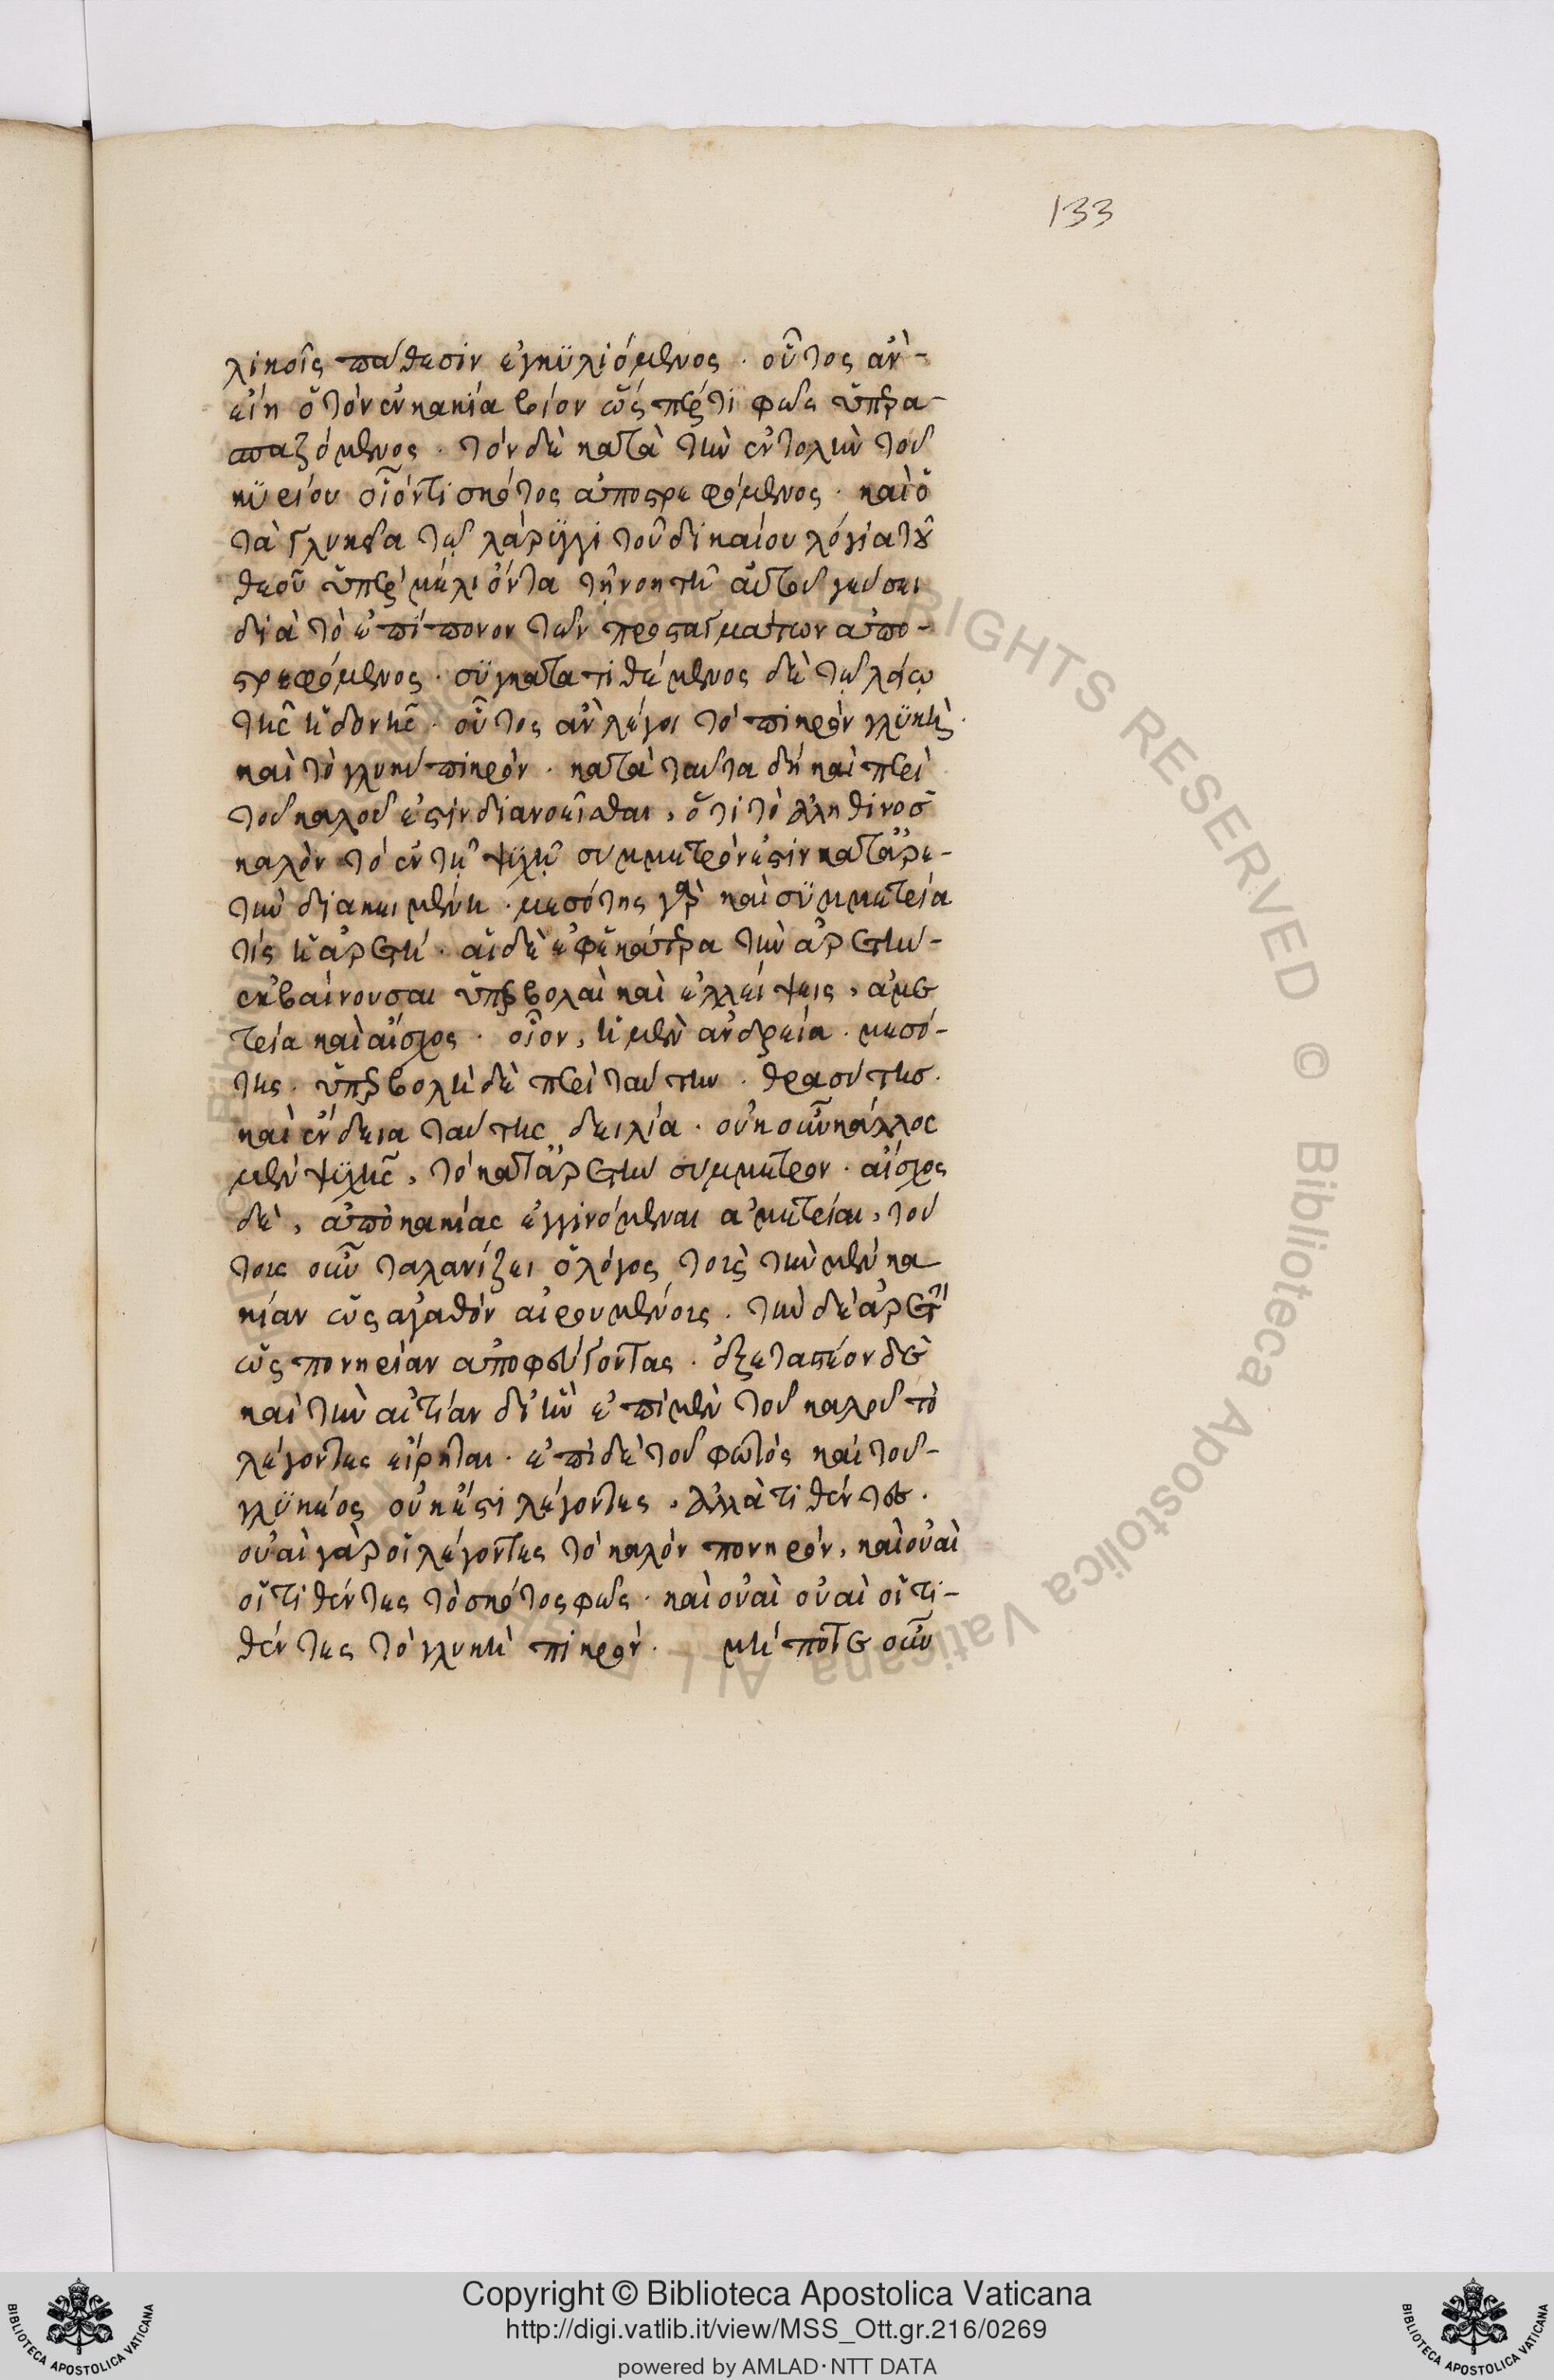 133
λικοῖς πάθεσιν ἐγκϋλιόμενος · οὗτος ἂν-
εἴη ὁ τὸν ἐν κακία βίον ὥς περ τι φῶς ὑπερα-
σπαζόμενος · τὸν δὲ κατὰ τὴν ἐντολὴν τοῦ
κϋρίου οἷόν τι σκότος ἀποστρεφόμενος · καὶ ὁ
τὰ γλυκέα τῷ λάρϋγγι τοῦ δικαίου λόγια τοῦ
θεοῦ ὑπὲρ μέλι ὄντα τῇ νοητῇ αὐτοῦ γεύσει
διὰ τὸ ἐπίπονον τῶν προσταγμάτων ἀπο-
στρεφόμενος · σϋγκατατιθέμενος δὲ τῷ λείῳ
τῆς ἡδονῆς · οὗτος ἂν λέγοι τὸ πικρὸν γλϋκὺ ·
καὶ τὸ γλυκὺ πικρόν · κατὰ ταῦτα δὴ καὶ περὶ
τοῦ καλοῦ ἐστὶν διανοεῖσθαι, ὅτι τὸ ἀληθινὸς
καλὸν τὸ ἐν τῇ ψϋχῇ συμμετρόν ἐστιν κατ ἀρε-
τὴν διακειμένη · μεσότης γὰρ καὶ σϋμμετρία
τίς ἡ ἀρετή · αἱ δὲ ἐφ ἑκάτερα τὴν ἀρετὴν-
ἐκβαίνουσαι ὑπερβολαὶ καὶ ἐλλείψεις, ἀμε
τρία καὶ αἶσχος · οἷον, ἡ μὲν ἀνδρεία · μεσό-
της · ὑπερβολὴ δὲ περὶ ταύτην · θρασύτης ·
καὶ ἔνδεια ταύτης δειλία · οὐκοῦν κάλλος
μὲν ψϋχῆς, τὸ κατ ἀρετὴν συμμετρον · αἶσχος
δὲ, ἀπὸ κακίας ἐγγινόμεναι ἀμετρίαι, τού
τοις οὖν ταλανίζει ὁ λόγος τοις τὴν μὲν κα
κίαν ὡς ἀγαθὸν αἱρουμένοις · τὴν δὲ ἀρετὴν
ὡς πονηρίαν ἀποφεύγοντας · ἐξεταστέον δὲ
καὶ τὴν αἰτίαν δι ἣν ἐπὶ μὲν τοῦ καλοῦ τὸ
λέγοντες εἴρηται · ἐπὶ δὲ τοῦ φωτὸς καὶ τοῦ-
γλϋκέος οὐκ ἔστι λέγοντες, ἀλλὰ τιθέντες ·
οὐαὶ γὰρ οἱ λέγοντες τὸ καλὸν πονηρόν, καὶ οὐαὶ
οἱ τιθέντες τὸ σκότος φῶς · καὶ οὐαὶ οὐαὶ οἱ τι-
θέντες τὸ γλυκὺ πικρόν · μή ποτε οὖν
Copyright © Biblioteca Apostolica Vaticana
http://digi.vatlib.it/view/MSS_Ott.gr.216/0269
powered by AMLAD·NTT DATA